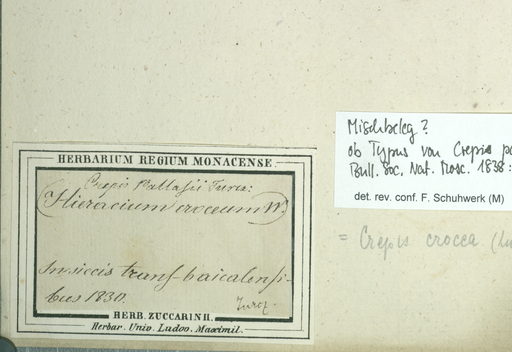 HERBARIUM REGIUM MONACENSE
Crepis Pallasii Turcz:
(Hieracium croceum W.)
In siccis transbaicalensi-
bus 1830.
Turcz.
HERB. ZUCCARINII.
Herbar. Univ. Ludov. Maximil.
Mischbeleg?
ob Typus von Crepis
Bull. Soc. Nat. Mosc. 1838:
det. rev. conf. F. Schuhwerk (M)
= Crepis crocea